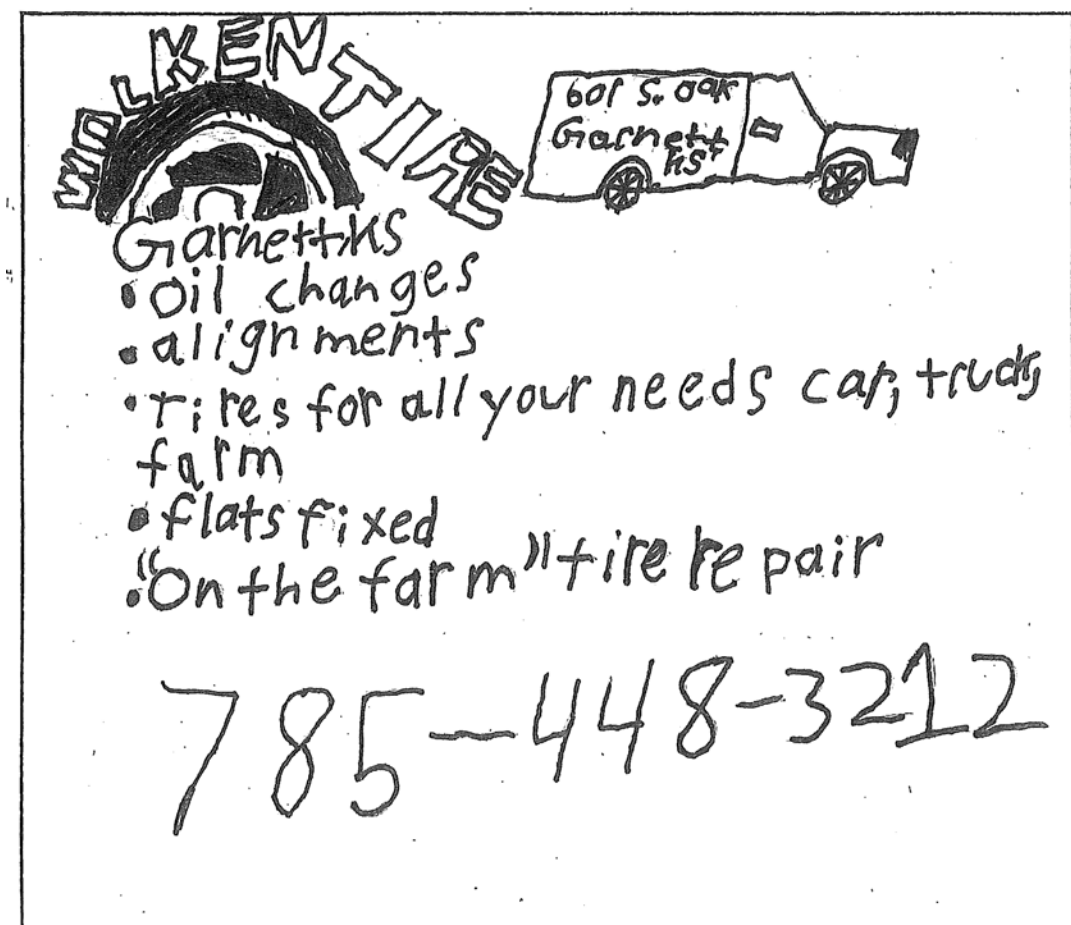 WOLKEN TIRE
601 S. oak
Garnett
KS
Garnett,KS
• oil changes
• alignments
• tires for all your needs car, truck,
farm
• flats fixed
• "On the farm" tire repair
785-448-3212